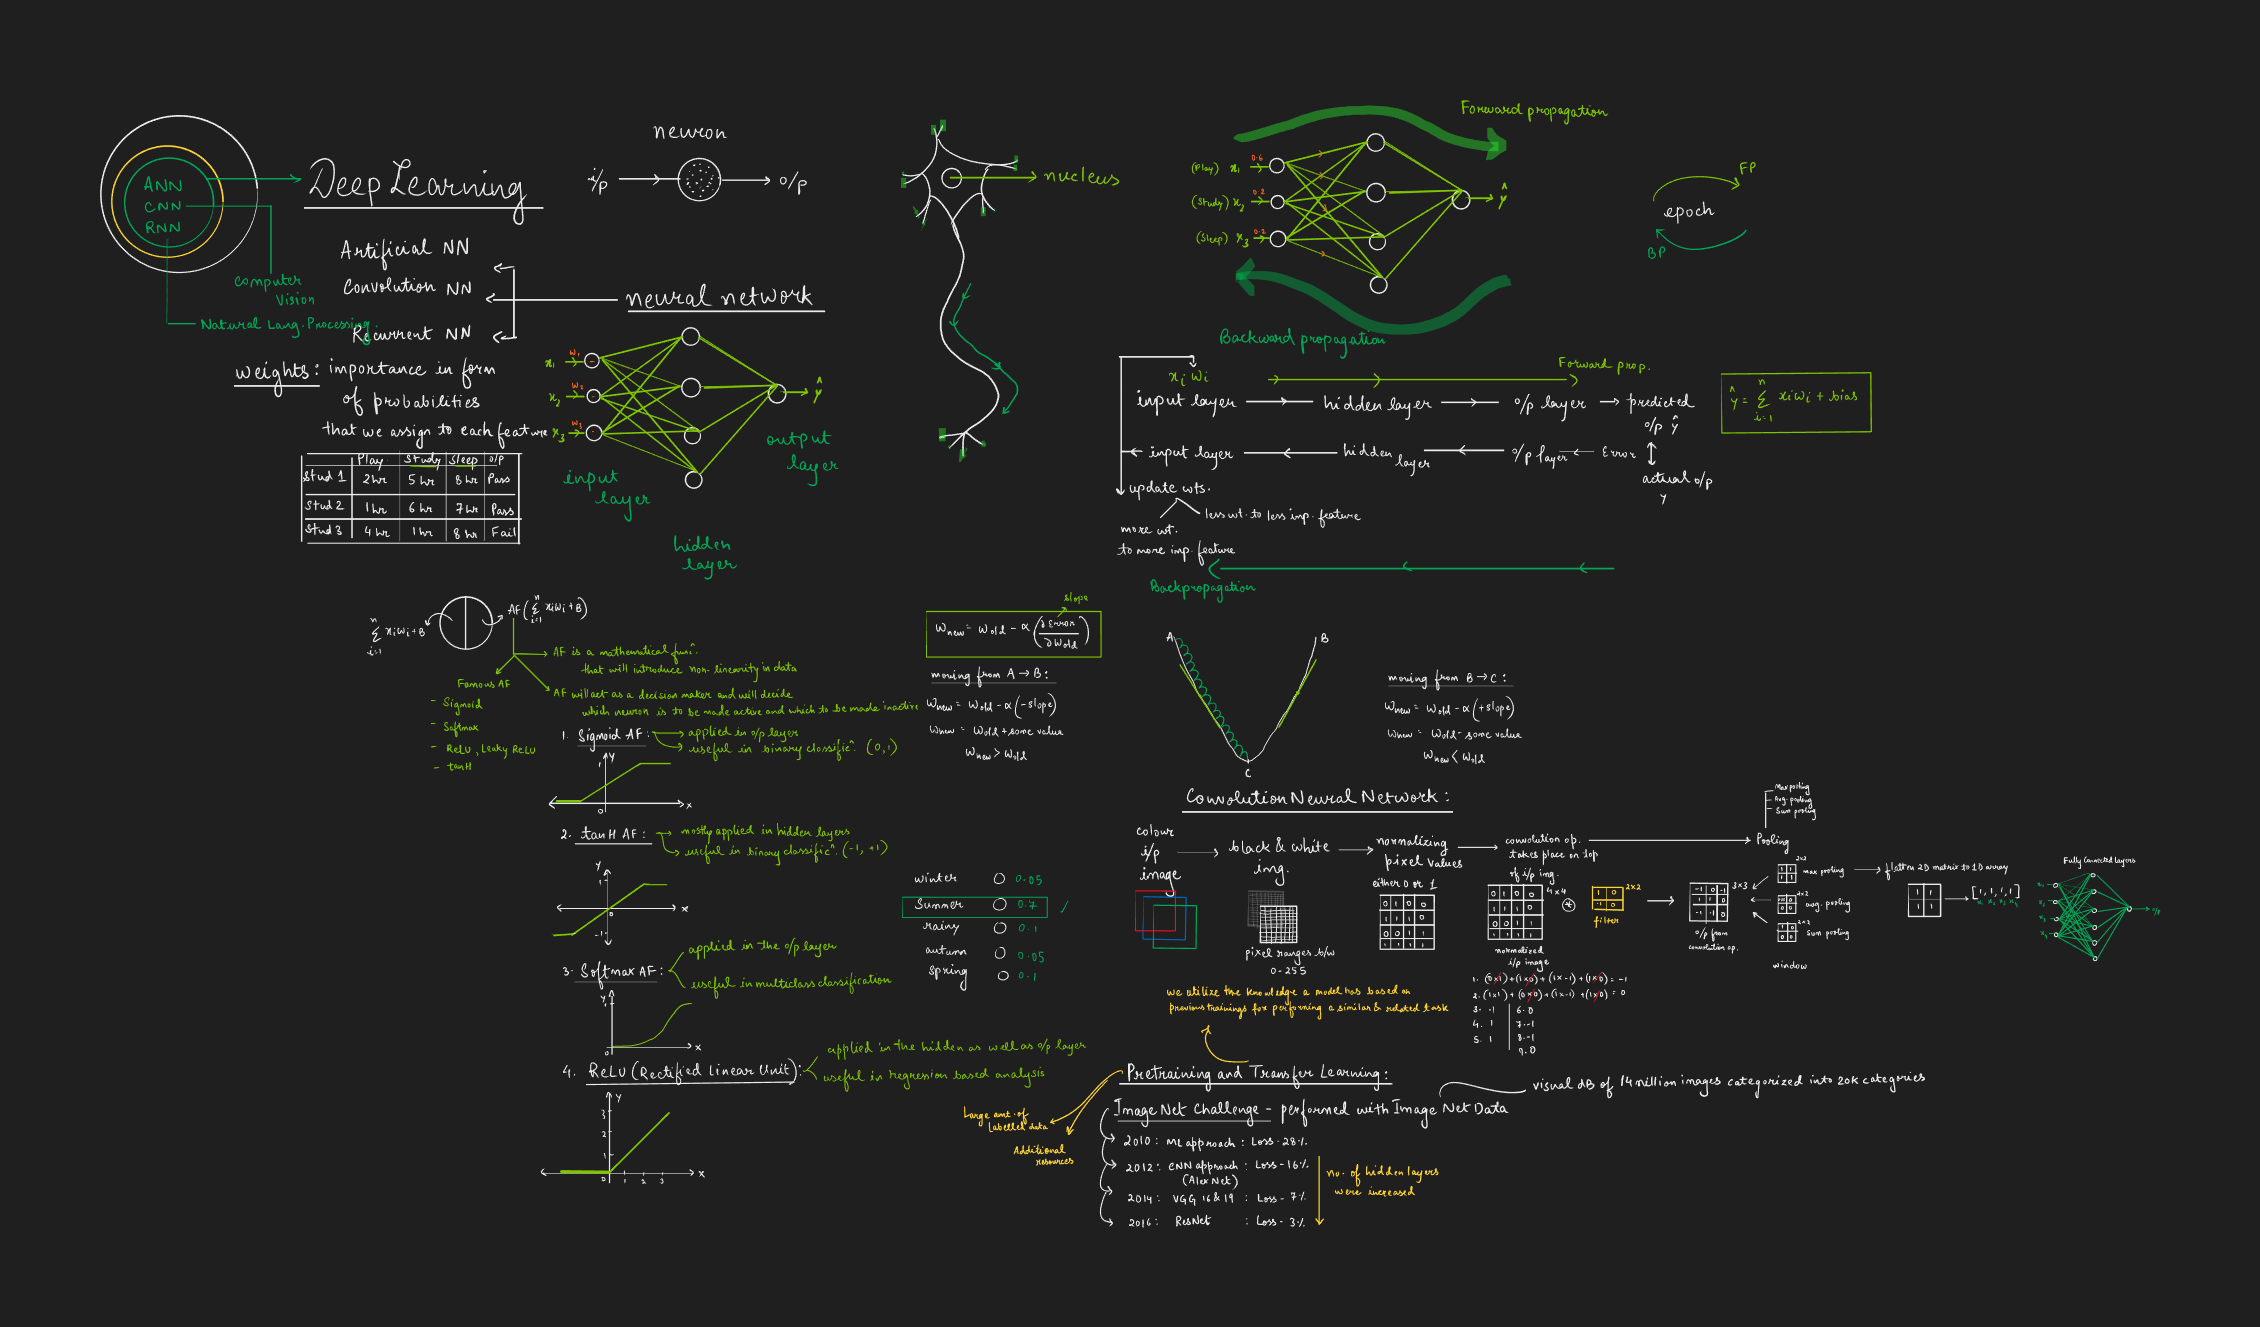 ANN
CNN
RNN
Deep Learning
Computer
Vision
Natural Lang. Processing
Artificial NN
Convolution NN
Recurrent NN
neural network
neuron
i/p
o/p
nucleus
weights: importance in form
of probabilities
that we assign to each feature
Play Study Sleep o/p
Stud 1 2hr 5 hr 8 hr Pass
Stud 2 1 hr 6 hr 7 hr Pass
Stud 3 4 hr 1 hr 8 hr Fail
x1 w1
x2 w2
x3 w3
ŷ
input
layer
hidden
layer
output
layer
Forward propagation
(Play) x1 0.6
(Study) x2 0.2
(Sleep) x3 0.2
ŷ
Backward propagation
FP
epoch
BP
xi wi
Forward prop.
input layer
hidden layer
o/p layer
predicted
o/p ŷ
ŷ = Σ xiwi + bias
n
i=1
input layer
hidden
layer
o/p layer
Error
actual o/p
y
update wts.
less wt. to less imp. feature
more wt.
to more imp. feature
Backpropagation
n
Σ xiwi + B
i=1
AF ( Σ xiwi + B )
n
i=1
AF is a mathematical func.
that will introduce non-linearity in data
AF will act as a decision maker and will decide
which neuron is to be made active and which to be made inactive
Famous AF
- Sigmoid
- Softmax
- ReLU, Leaky ReLU
- tanH
1. Sigmoid AF:
applied in o/p layer
useful in binary classific^n. (0,1)
y
1
0
x
2. tanH AF:
mostly applied in hidden layers
useful in binary classific^n. (-1, +1)
y
1
0
x
-1
3. Softmax AF:
applied in the o/p layer
useful in multiclass classification
y
1
0
x
4. ReLU (Rectified Linear Unit):
applied in the hidden as well as o/p layer
useful in regression based analysis
y
3
2
1
0 1 2 3
x
slope
Wnew = Wold - α (∂Error / ∂Wold)
moving from A → B:
Wnew = Wold - α (-slope)
Wnew = Wold + some value
Wnew > Wold
A
B
C
moving from B → C:
Wnew = Wold - α (+slope)
Wnew = Wold - some value
Wnew < Wold
winter 0.05
Summer 0.7
rainy 0.1
autumn 0.05
spring 0.1
Convolution Neural Network:
colour
i/p
image
black & white
img.
pixel ranges b/w
0-255
normalizing
pixel values
either 0 or 1
0 1 0 0
1 1 1 0
0 0 1 1
1 1 1 1
convolution op.
takes place on top
of i/p img.
4x4
0 1 0 0
1 1 1 0
0 0 1 1
0 1 1 1
normalized
i/p image
2x2
1 0
-1 0
filter
3x3
-1 0 -1
1 1 0
-1 -1 0
o/p from
convolution op.
Max pooling
Avg. pooling
Sum pooling
Pooling
2x2
max pooling
2x2
avg. pooling
2x2
sum pooling
window
flattn 2D matrix to 1D array
1 1
1 1
[1, 1, 1, 1]
x1 x2 x3 x4
Fully Connected layers
x1
x2
x3
x4
o/p
1. (0x1) + (1x0) + (1x-1) + (1x0) = -1
2. (1x1) + (0x0) + (1x-1) + (1x0) = 0
3. -1 6. 0
4. 1 7. -1
5. 1 8. -1
9. 0
we utilize the knowledge a model has based on
previous trainings for performing a similar & related task
Pretraining and Transfer Learning:
Large amt. of
labelled data
Additional
resources
Image Net Challenge - performed with Image Net Data
visual dB of 14 million images categorized into 20K categories
2010: ML approach: Loss - 28%
2012: CNN approach: Loss - 16%
(Alex Net)
2014: VGG 16 & 19 : Loss - 7%
2016: ResNet : Loss - 3%
no. of hidden layers
were increased